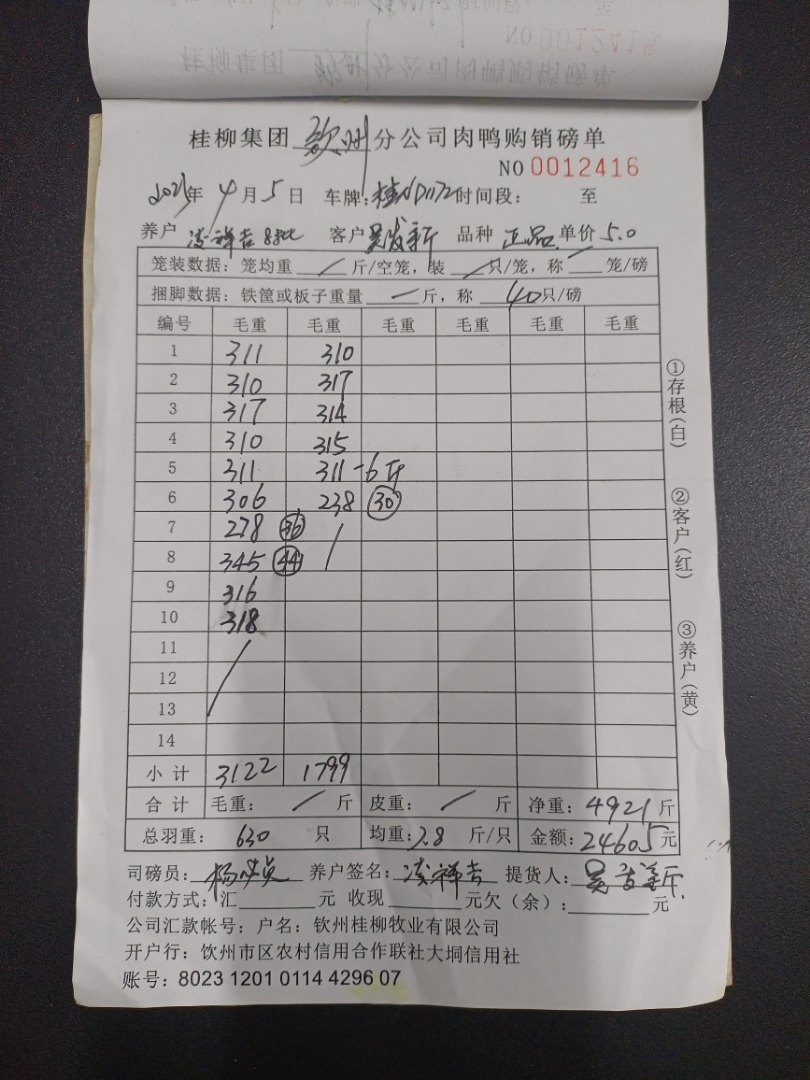 桂柳集团 钦州 分公司肉鸭购销磅单
NO 0012416
年 4 月 5 日 车牌: 时间段: 至
养户 凌祥吉 客户 吴发新 品种 正品 单价 5.0
笼装数据: 笼均重 / 斤/空笼, 装 / 只/笼, 称 — 笼/磅
捆脚数据: 铁筐或板子重量 — 斤, 称 40 只/磅
编号 毛重 毛重 毛重 毛重 毛重 毛重
1 311 310
2 310 317
3 317 314
4 310 315
5 311 311 -6斤
6 306 238 30
7 278 36 /
8 345 44
9 316
10 318
11 /
12
13
14
小计 3122 1799
合计 毛重: / 斤 皮重: / 斤 净重: 4921 斤
总羽重: 630 只 均重: 7.8 斤/只 金额: 24605 元
司磅员: 养户签名: 凌祥吉 提货人: 吴发新
付款方式: 汇 元 收现 元欠(余): 元
公司汇款帐号: 户名: 钦州桂柳牧业有限公司
开户行: 饮州市区农村信用合作联社大垌信用社
账号: 8023 1201 0114 4296 07
①存根(白)
②客户(红)
③养户(黄)